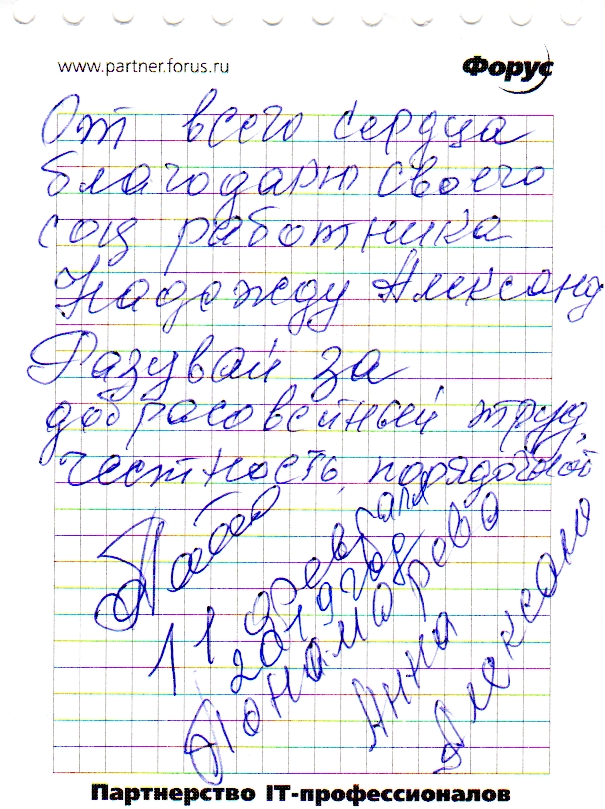 www.partner.forus.ru
Форус
От всего сердца
благодарю своего
соц работника
Надежду Александ
Разувай за
добрасовейный труд,
честность, порядочной
11 февраля
2019 год
Понамарева
Анна
Алексано
Партнерство IT-профессионалов